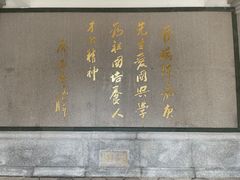 发扬陈嘉庚
先生爱国兴学
为祖国培养人
才的精神